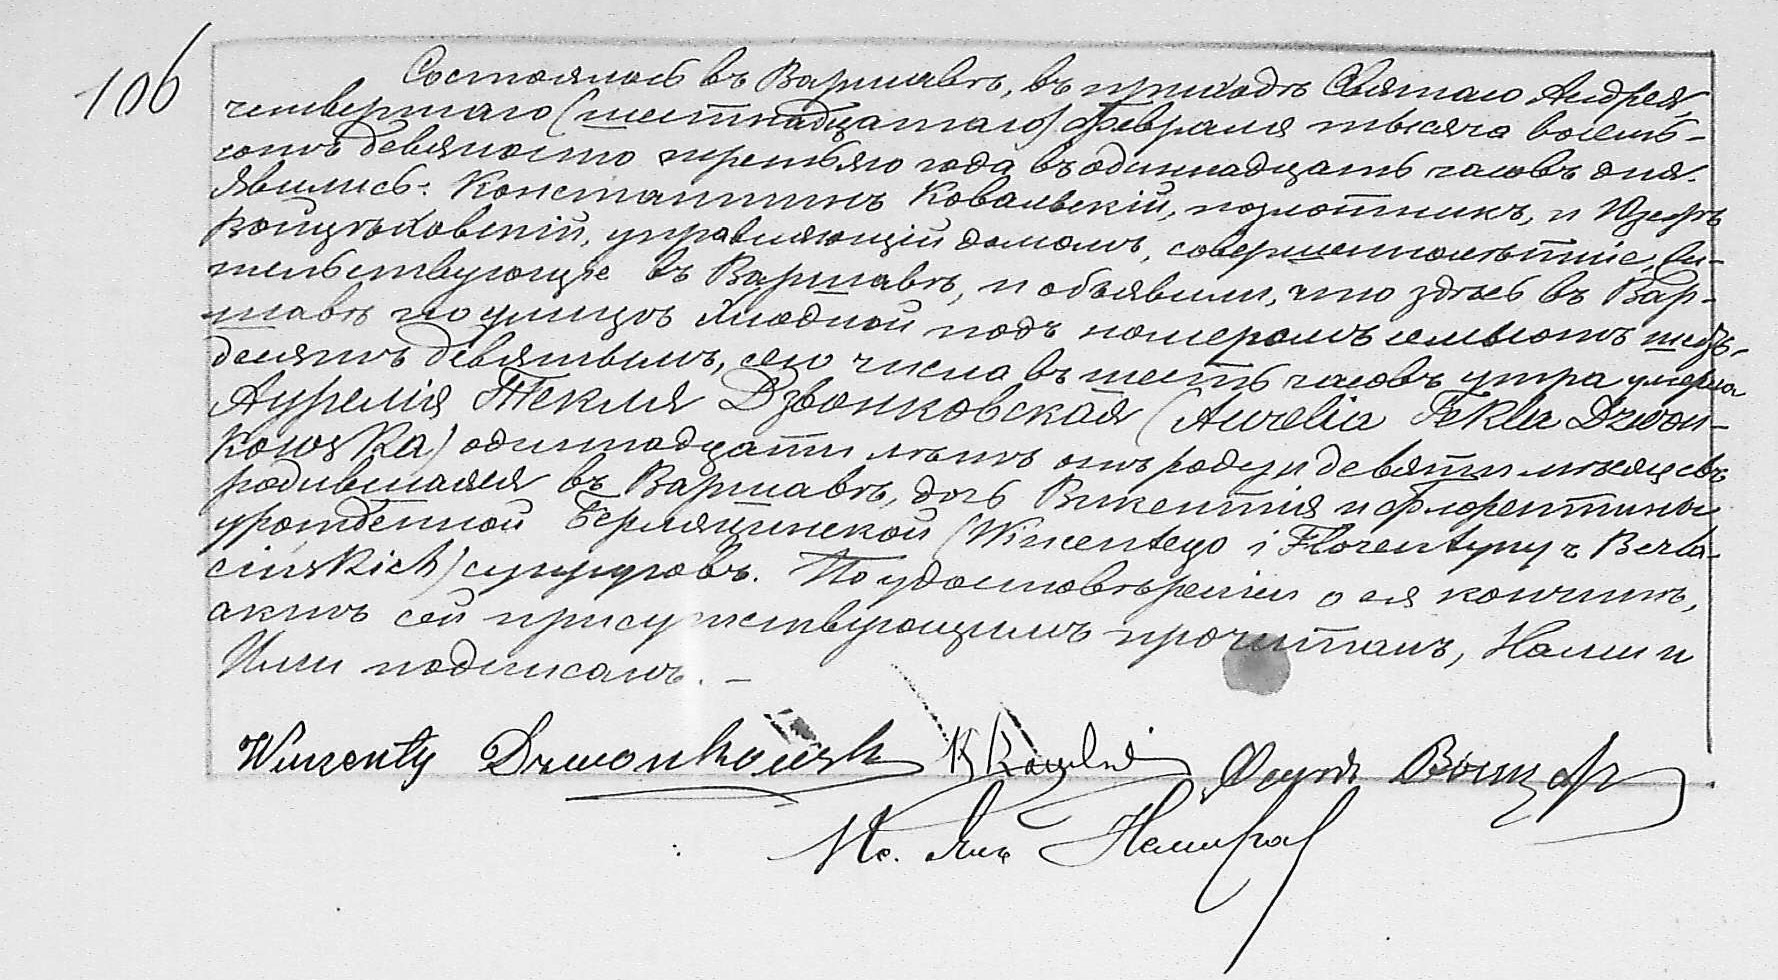 106
Состоялось въ Варшавѣ, въ приходѣ Святаго Андрея,
четвертаго (шестнадцатаго) Февраля тысяча восемь-
сотъ девяносто третьяго года въ одиннадцать часовъ дня.
Явились: Константинъ Ковальскій, позлотникъ, и Юзефъ
Войцѣховскій, управляющій домомъ, совершеннолѣтніе, жи-
тельствующіе въ Варшавѣ, и объявили, что здѣсь въ Вар-
шавѣ по улицѣ Хлодной подъ номеромъ семьсотъ шесть-
десятъ девятымъ, сего числа въ шесть часовъ утра умерла
Аурелія Текля Дзвонковская (Aurelia Tekla Dzwon-
kowska) одиннадцати лѣтъ отъ роду и девяти мѣсяцевъ
родившаяся въ Варшавѣ, дочь Викентія и Флорентины
урожденной Берляцинской (Wincentego i Florentyny z Berla-
cinskich) супруговъ. По удостовѣреніи о ея кончинѣ,
актъ сей присутствующимъ прочитанъ, Нами и
Ими подписанъ. —
Winzenty Dzwonkowski
Кс. Янъ